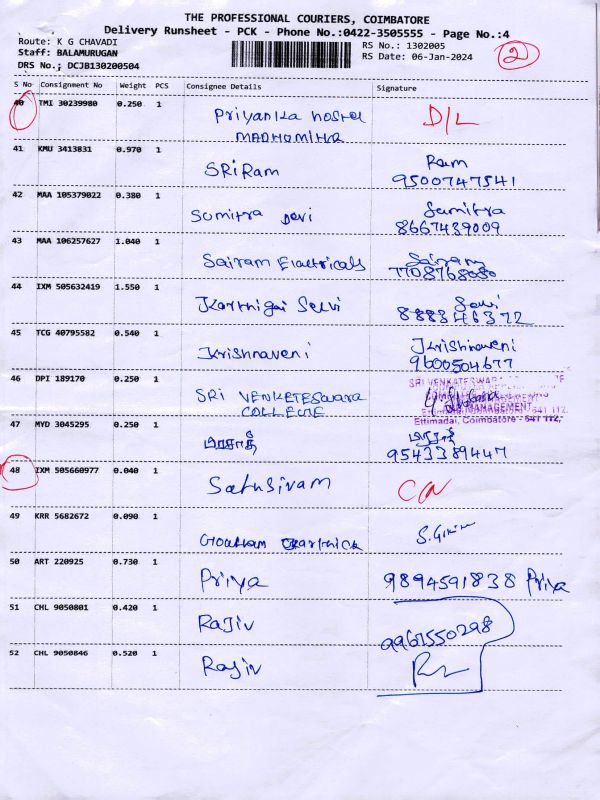 THE PROFESSIONAL COURIERS, COIMBATORE
Delivery Runsheet - PCK - Phone No.:0422-3505555 - Page No.:4
Route: K G CHAVADI
RS No.: 1302005
Staff: BALAMURUGAN
RS Date: 06-Jan-2024
2
DRS No.; DCJB130200504
S No Consignment No Weight PCS Consignee Details Signature
40 TMI 30239980 0.250 1 Priyanka hostel D/L
MADHUMITHA
41 KMU 3413831 0.970 1 SRiRam Ram
9500747541
42 MAA 105379022 0.380 1 Sumitra Devi Sumitra
8667439009
43 MAA 106257627 1.040 1 Sairam Electricals Sairam
7708768080
44 IXM 505632419 1.550 1 Karthigai Selvi Selvi
888346372
45 TCG 40795582 0.540 1 Krishnaveni Krishnaveni
9600504677
46 DPI 189170 0.250 1 SRI VENKETESWARA
COLLEGE
SRI VENKATESWARA
MANAGEMENT
Ettimadai, Coimbatore - 641 112.
47 MYD 3045295 0.250 1 பிரசாத் பிரசாத்
9543389447
48 IXM 505660977 0.040 1 Satusivam C/N
49 KRR 5682672 0.090 1 Goutham Karthick
50 ART 220925 0.730 1 Priya 9894591838 Priya
51 CHL 9050801 0.420 1 Rajiv 9961550298
52 CHL 9050846 0.520 1 Rajiv